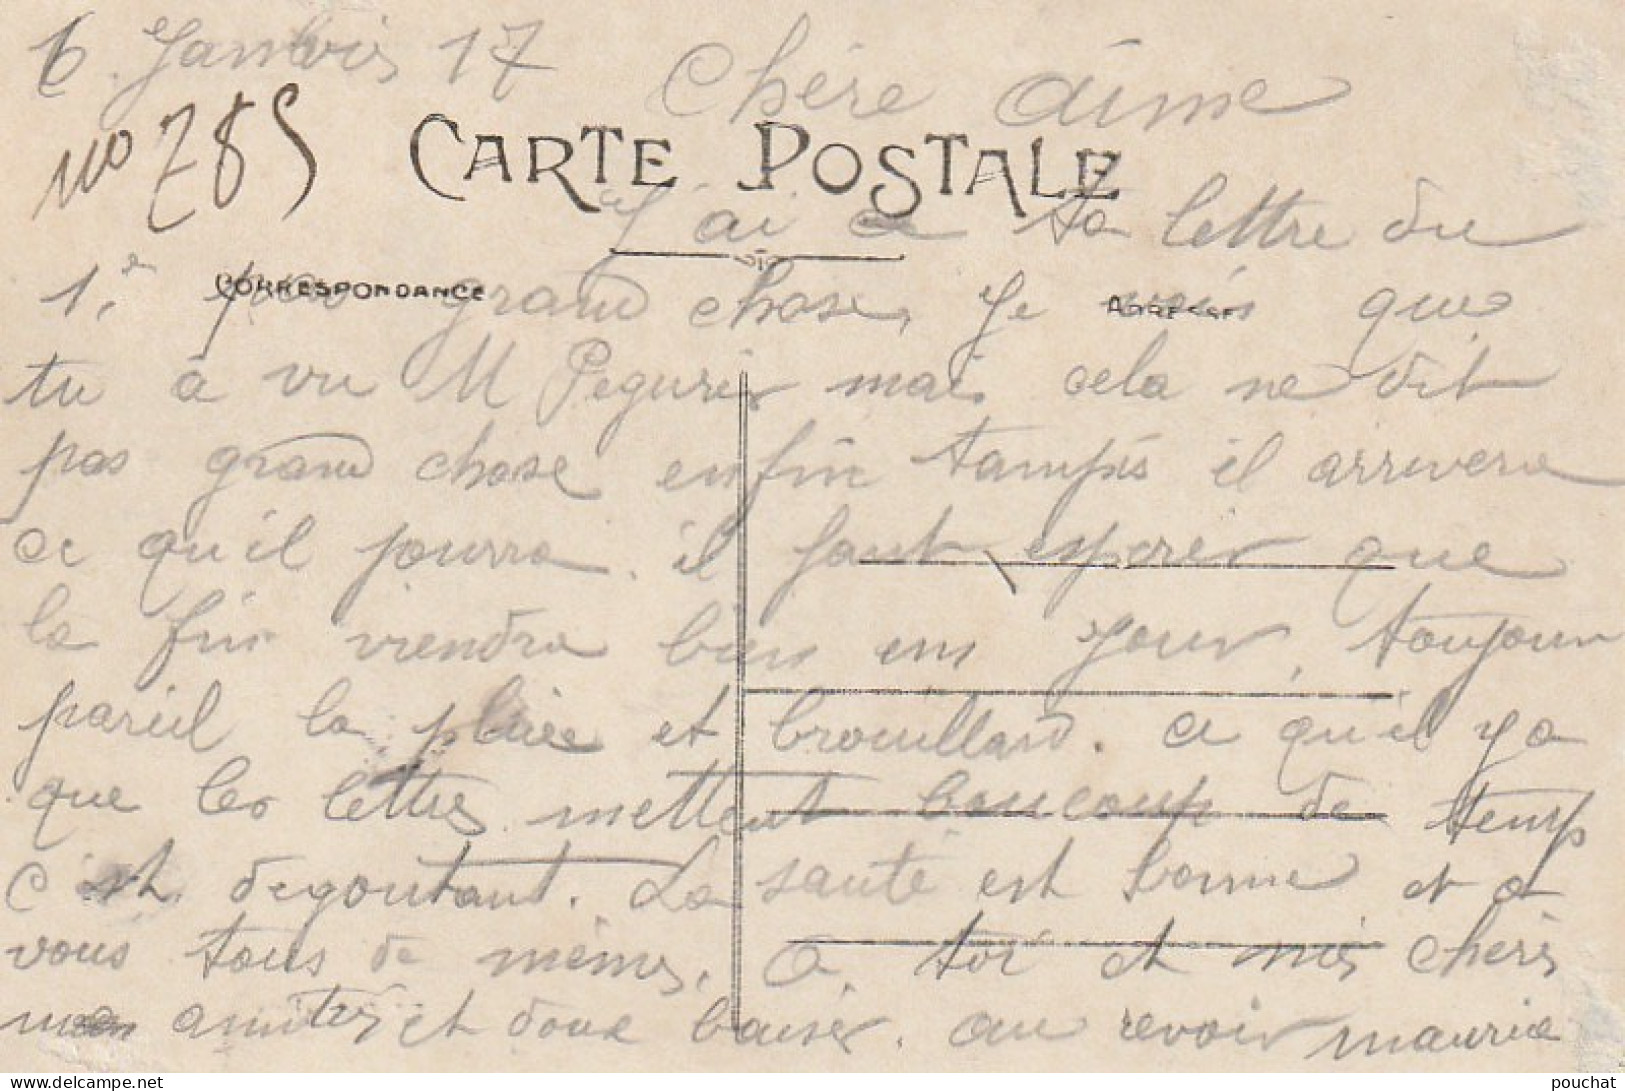 6 Janvier 17 Chère aime
no 785
CARTE POSTALE
J'ai ta lettre du
CORRESPONDANCE
ADRESSE
1er pas grand chose, Je vois que
tu à vu M Pegurier mais cela ne dit
pas grand chose enfin tampis il arrivera
ce qu'il pourra. il faut esperer que
la fin viendra bien un jour, toujour
pareil la pluie et brouillard. ce qu'il y a
que les lettres mettent boucoup de temp
c'est degoutant. La santé est bonne et a
vous tous de mêmes. a toi et mes chéris
mes amitiés et doux baiser. au revoir maurice
pouchat